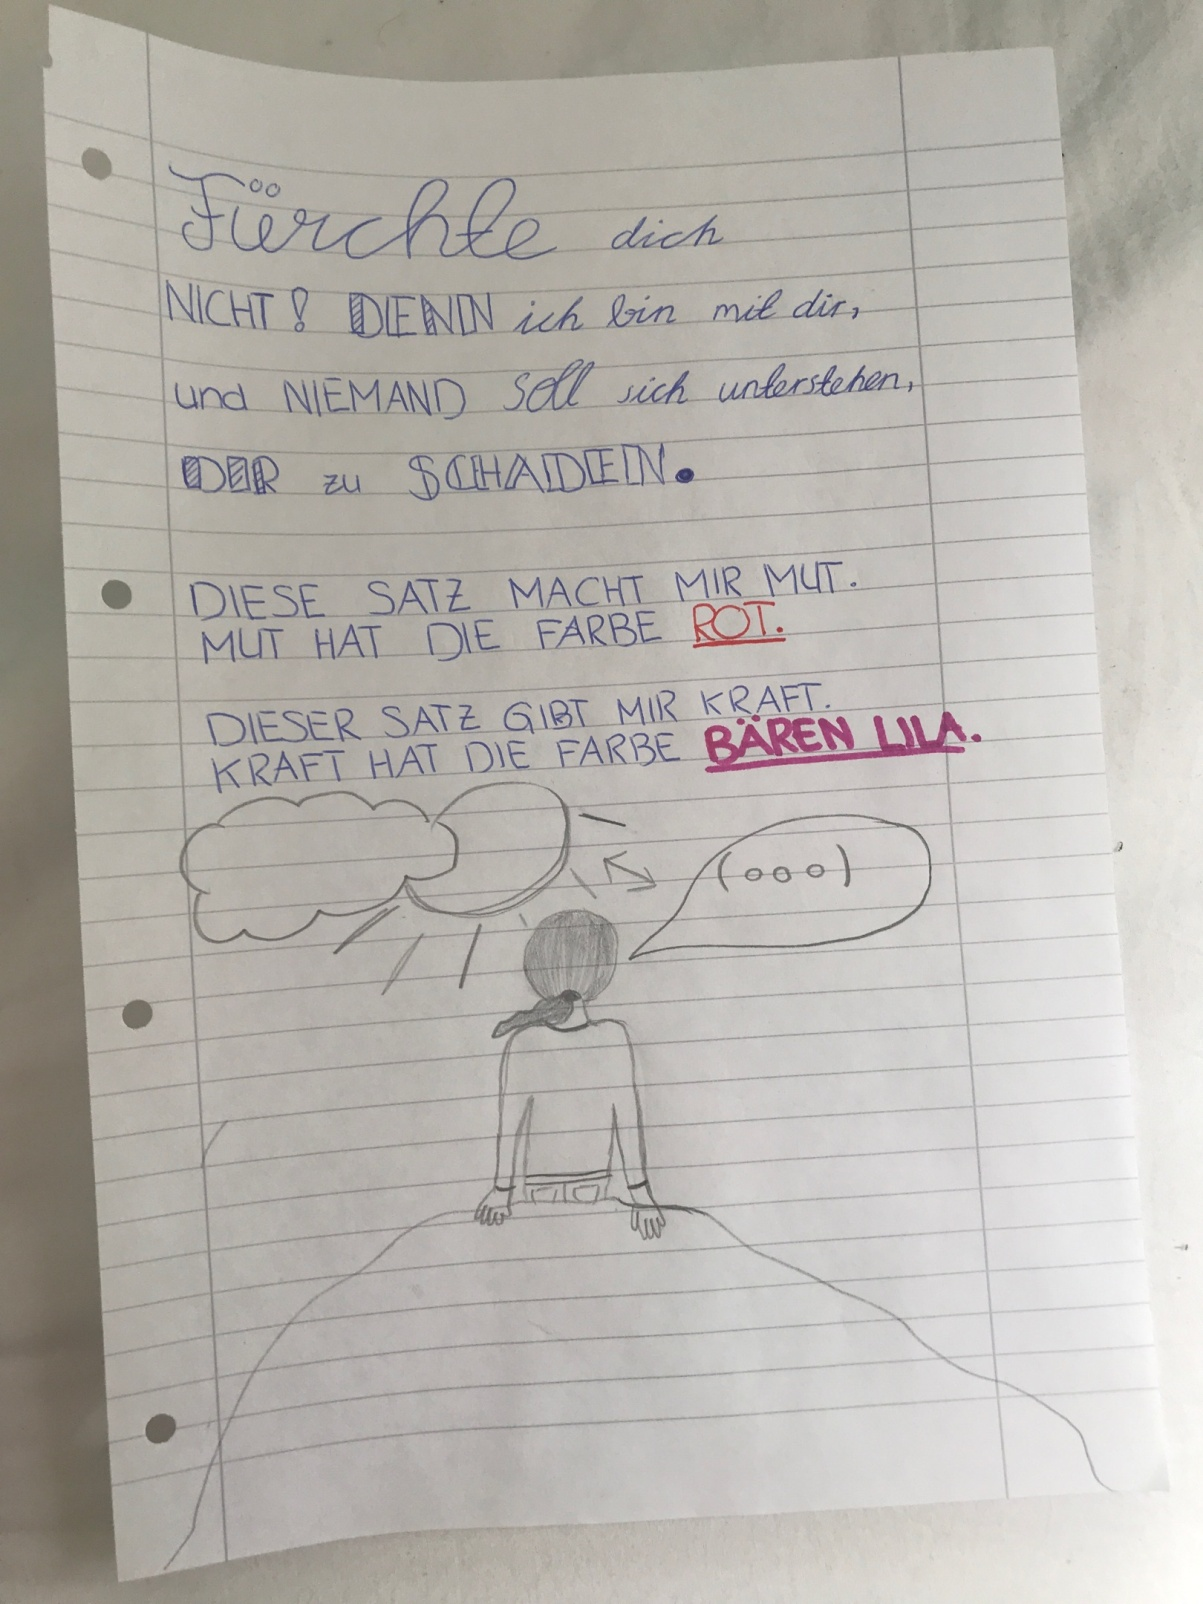 Fürchte dich
NICHT! DENN ich bin mit dir,
und NIEMAND soll sich unterstehen,
DIR zu SCHADEN.
DIESE SATZ MACHT MIR MUT.
MUT HAT DIE FARBE ROT.
DIESER SATZ GIBT MIR KRAFT.
KRAFT HAT DIE FARBE BÄREN LILA.
(ooo)